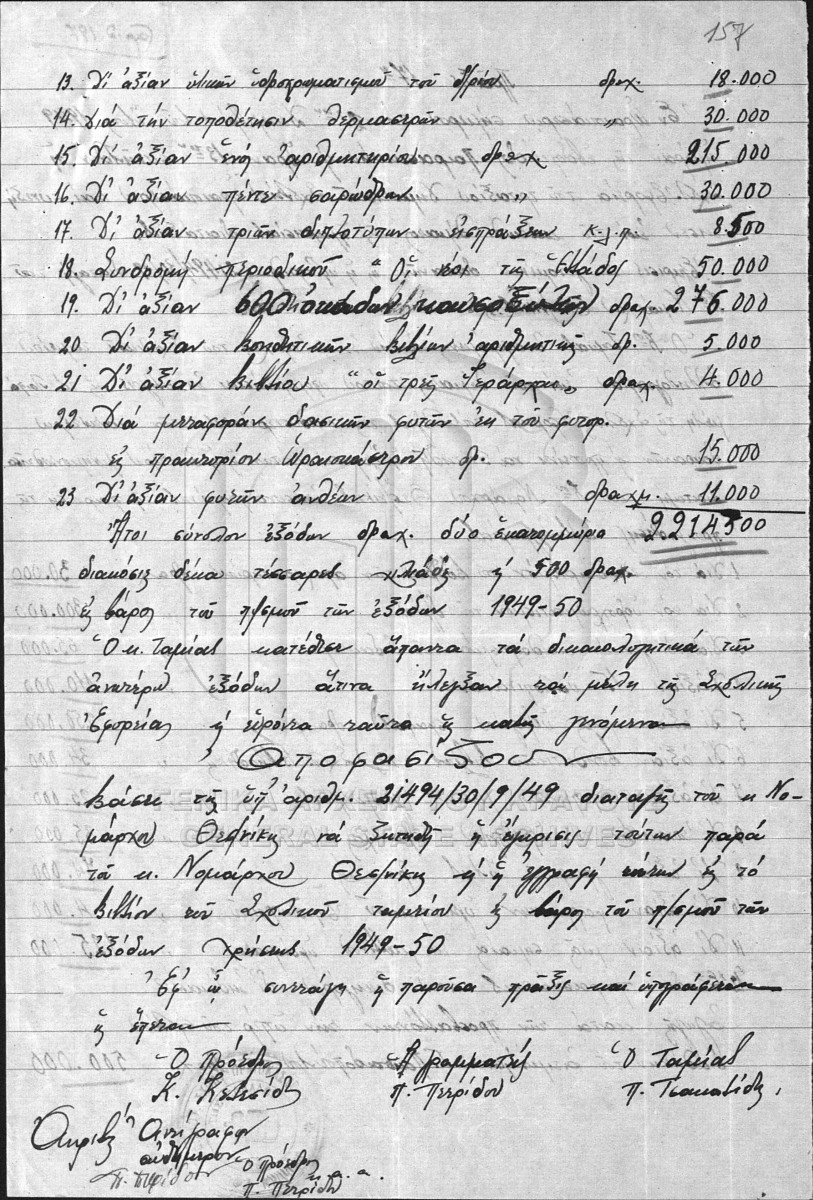 157
13. Δι' ἀξίαν ὑλικῶν ὑδροχρωματισμοῦ τοῦ δραχ. 18.000
14. Διά τήν τοποθέτησιν θερμαστρῶν " 30.000
15. Δι' ἀξίαν ἑνός ἀριθμητηρίου δραχ. 215.000
16. Δι' ἀξίαν πέντε σαρώθρων " 30.000
17. Δι' ἀξίαν τριῶν διπλοτύπων εἰσπράξεων κ.λ.π. 8.500
18. Συνδρομή περιοδικοῦ " Οἱ νέοι τῆς Ἑλλάδος 50.000
19. Δι' ἀξίαν 600 ὀκάδων καυσοξύλων δραχ. 276.000
20. Δι' ἀξίαν βοηθητικῶν βιβλίων ἀριθμητικῆς δρ. 5.000
21 Δι' ἀξίαν βιβλίου "οἱ τρεῖς Ἱεράρχαι" δραχ. 4.000
22. Διά μεταφοράν δασικῶν φυτῶν ἐκ τοῦ φυτορ.
εἰς πρακτορίον Ὡραιοκάστρου δρ. 15.000
23 Δι' ἀξίαν φυτῶν ἀνθέων δραχμ. 11.000
Ἤτοι σύνολον ἐξόδων δραχ. δύο ἑκατομμύρια 2214500
διακόσιες δέκα τέσσαρες χιλιάδες ἤ 500 δραχ.
εἰς βάρος τοῦ π/σμοῦ τῶν ἐξόδων 1949-50
Ὁ κ. Ταμίας κατέθεσε ἅπαντα τά δικαιολογητικά τῶν
ἀνωτέρω ἐξόδων ἅτινα ἤλεγξαν τά μέλη τῆς Σχολικῆς
Ἐφορείας καί εὑρόντα ταῦτα ὡς καλῶς γενόμενα
Ἀποφασίζουν
Βάσει τῆς ὑπ' ἀριθμ. 21494/30/9/49 διαταγῆς τοῦ κ Νο-
μάρχου Θεσ/νίκης νά ζητηθῇ ἡ ἔγκρισις τούτων παρά
τοῦ κ. Νομάρχου Θεσ/νίκης καί ἡ ἐγγραφή τούτων εἰς τό
βιβλίον τοῦ Σχολικοῦ ταμείου εἰς βάρος τοῦ π/σμοῦ τῶν
ἐξόδων χρήσεως 1949-50
Ἐφ' ᾧ συνετάγη ἡ παροῦσα πράξις καί ὑπογράφεται
ὡς ἕπεται
Ὁ Πρόεδρος Ἡ Γραμματεύς Ὁ Ταμίας
Κ. Π. Πετρίδου Π.
Ἀκριβές Ἀντίγραφον
αὐθήμερον
Ὁ Πρόεδρος
κ.α.α.
Π. Πετρίδου